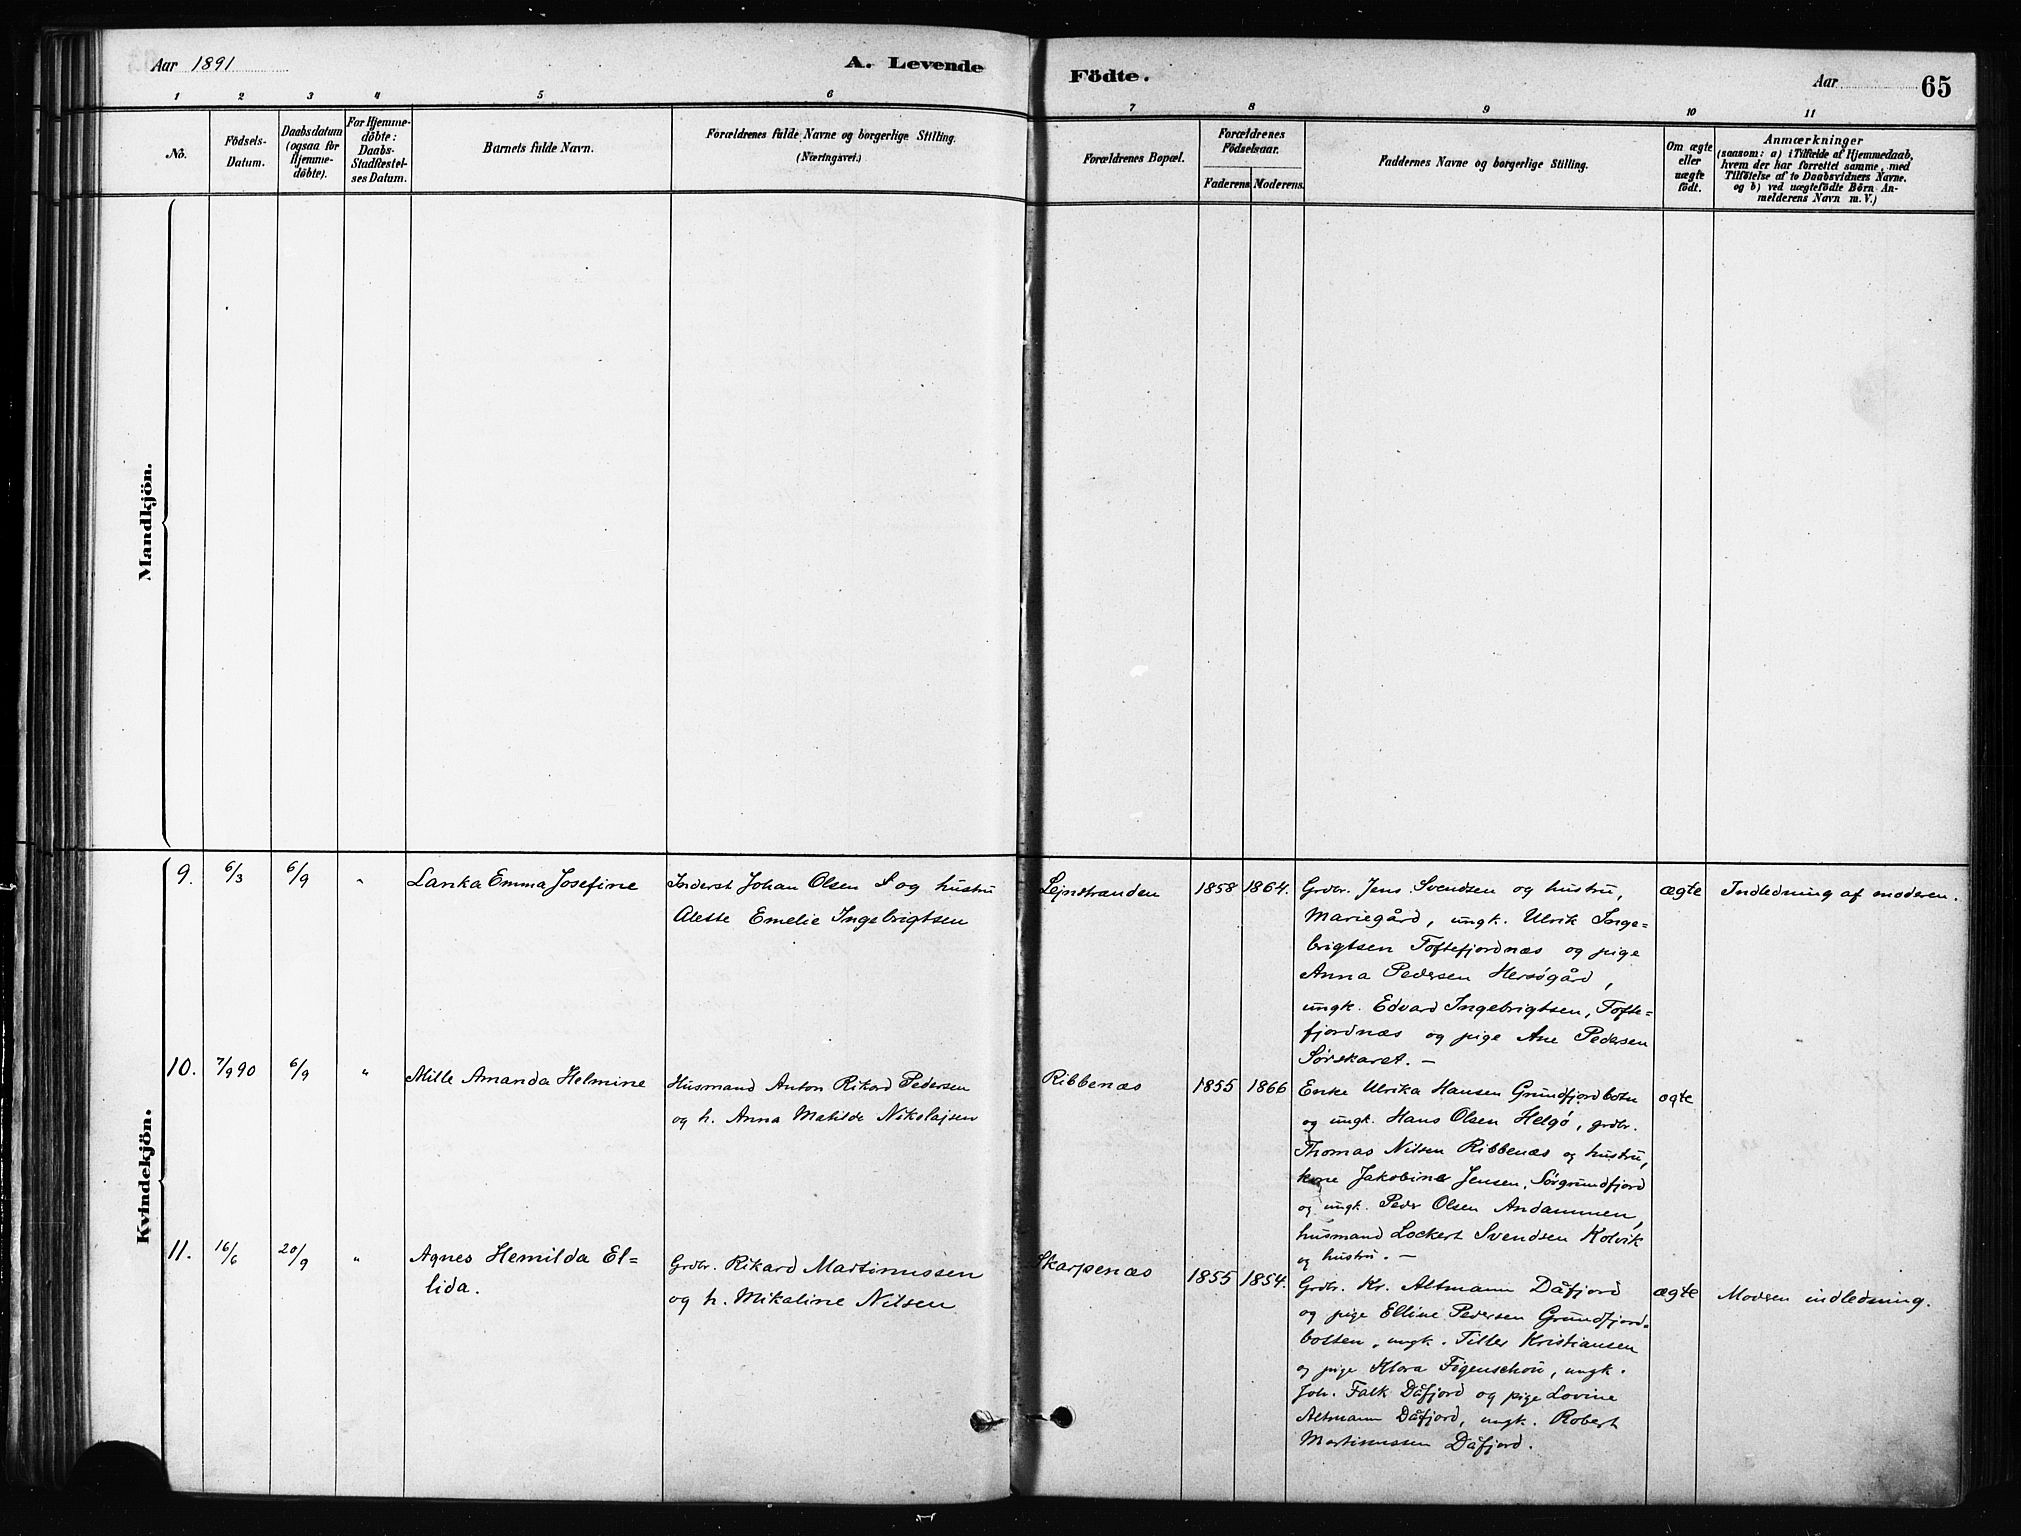 Aar 1891
A. Levende Födte.
Aar
65
1 2 3 4 5 6 7 8 9 10 11
No.
Födsels-
Datum.
Daabsdatum
(ogsaa for
Hjemme-
döbte).
For Hjemme-
döbte:
Daabs-
Stadfæstel-
ses Datum.
Barnets fulde Navn.
Forældrenes fulde Navne og borgerlige Stilling.
(Næringsvei.)
Forældrenes Bopæl.
Forældrenes
Födselsaar.
Faderens.
Moderens.
Faddernes Navne og borgerlige Stilling.
Om ægte
eller
uægte
födt.
Anmærkninger
(saasom: a) i Tilfælde af Hjemmedaab,
hvem der har forrettet samme, med
Tilföielse af to Daabsvidners Navne,
og b) ved uægtefödte Börn An-
melderens Navn m. V.)
Mandkjön.
Kvindekjön.
9. 6/3 6/9 " Lanka Emma Josefine
Inderst Johan Olsen S og hustru
Alette Emelie Ingebrigtsen
Lejnstranden 1858 1864.
Grdbr. Jens Svendsen og hustru,
Mariegård, ungk. Ulrik Inge-
brigtsen Toftefjordnæs og pige
Anna Pedersen Hersøgård,
ungk. Edvard Ingebrigtsen, Tofte-
fjordnæs og pige Ane Pedersen
Sørskaret. —
ægte Indledning af moderen.
10. 7/9 90 6/9 " Mille Amanda Helmine
Husmand Anton Rikard Pedersen
og h. Anna Matilde Nikolajsen
Ribbenæs 1855 1866
Enke Ulrika Hansen Grundfjordbotn
og ungk. Hans Olsen Helgø, grdbr.
Thomas Nilsen Ribbenæs og hustru,
kone Jakobine Jensen, Sørgrundfjord
og ungk. Peder Olsen Andammen,
husmand Lockert Svendsen Kolvik
og hustru. —
ægte
11. 16/6 20/9 " Agnes Hemilda El-
lida.
Grdbr. Rikard Martinussen
og h. Mikaline Nilsen
Skarpenæs 1855 1854.
Grdbr. Kr. Altmann Dåfjord
og pige Elline Pedersen Grundfjord-
botten, ungk. Tiller Kristiansen
og pige Klara Figenschou, ungk.
Joh. Falk Dåfjord og pige Lovine
Altmann Dåfjord, ungk. Robert
Martinussen Dåfjord.
ægte Modren indledning.